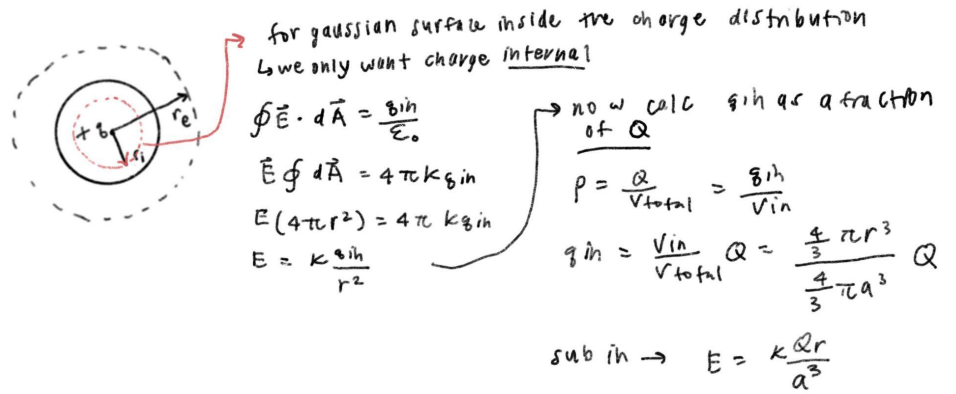 for gaussian surface inside the charge distribution
↳ we only want charge internal
+q
r_e
r_i
∮E⃗ · dA⃗ = q_in/ε₀
E⃗ ∮ dA⃗ = 4πkq_in
E(4πr²) = 4π kq_in
E = k q_in/r²
now calc q_in as a fraction
of Q
ρ = Q/V_total = q_in/V_in
q_in = V_in/V_total Q = (4/3 πr³)/(4/3 πa³) Q
sub in → E = k Qr/a³